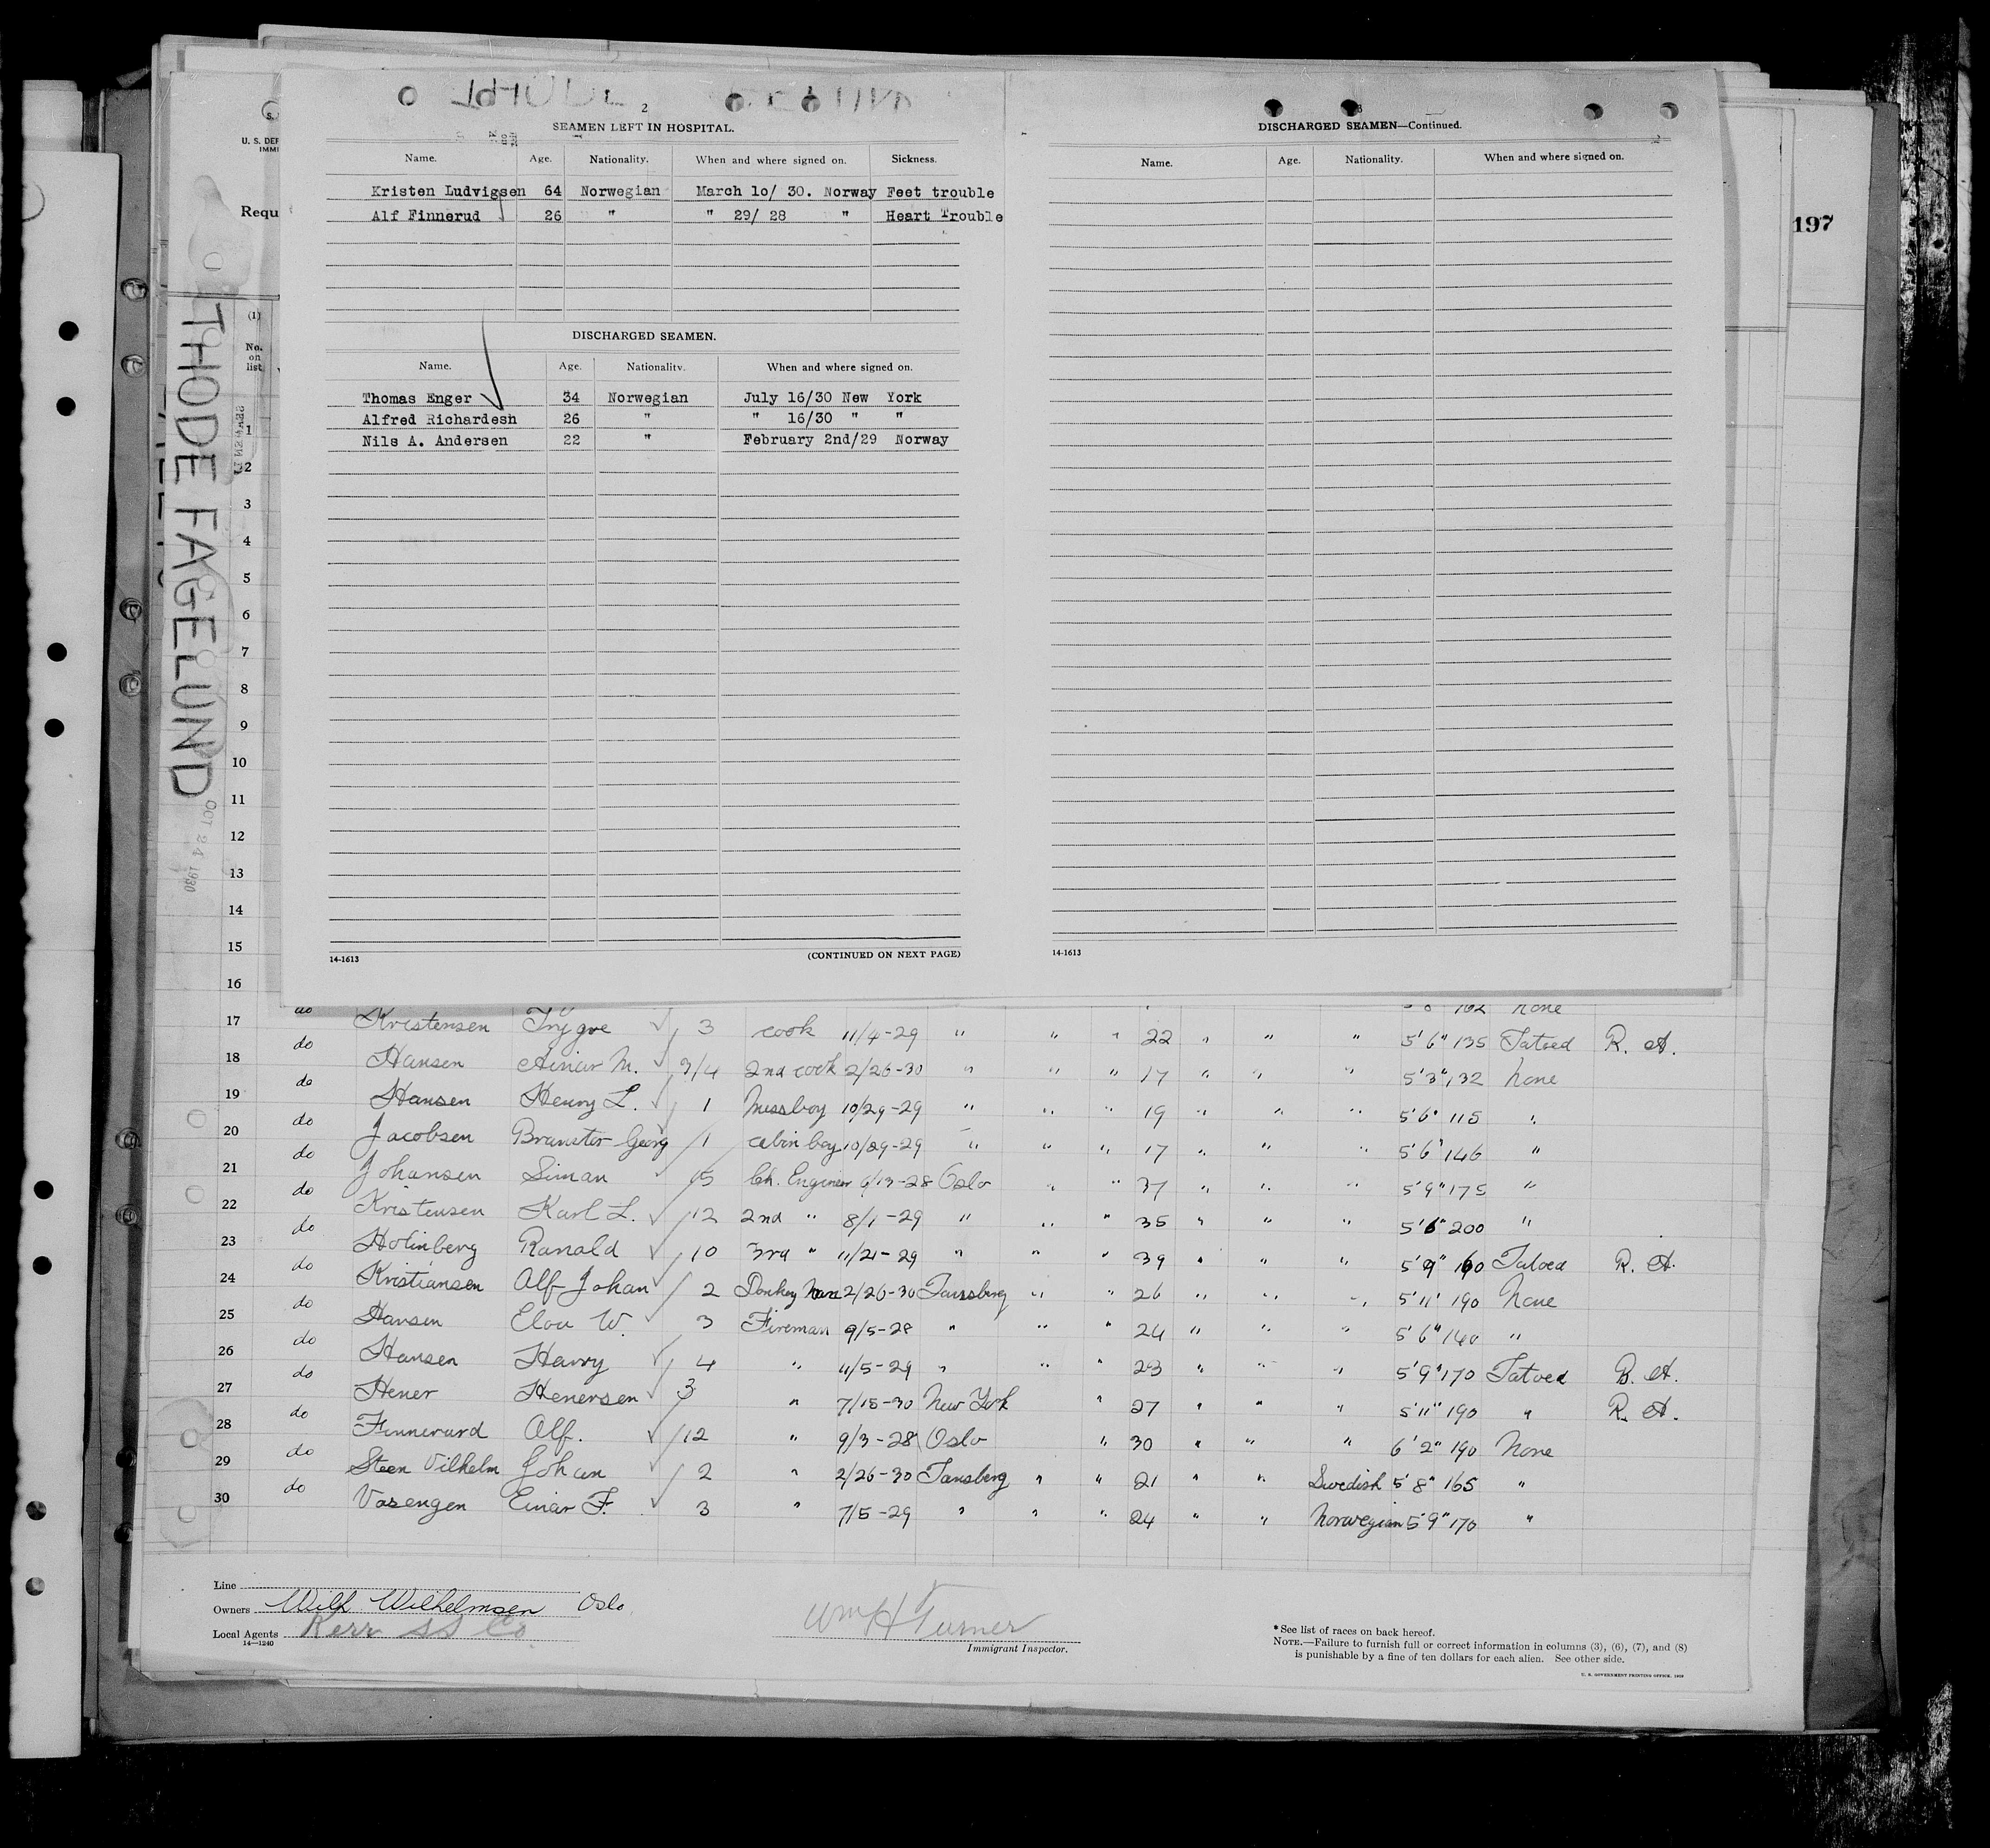 2
SEAMEN LEFT IN HOSPITAL.
Name. Age. Nationality. When and where signed on. Sickness.
Kristen Ludvigsen 64 Norwegian March 1o/ 30. Norway Feet trouble
Alf Finnerud 26 " " 29/ 28 " Heart Trouble
DISCHARGED SEAMEN.
Name. Age. Nationality. When and where signed on.
Thomas Enger 34 Norwegian July 16/30 New York
Alfred Richardesn 26 " " 16/30 " "
Nils A. Andersen 22 " February 2nd/29 Norway
14-1613 (CONTINUED ON NEXT PAGE)
3
DISCHARGED SEAMEN—Continued.
Name. Age. Nationality. When and where signed on.
14-1613
197
U. S. DEP
IMMI
Requ
(1)
No. on list
THODE FAGELUND
OCT 24 1930
1
2
3
4
5
6
7
8
9
10
11
12
13
14
15
16
162 none
17 do Kristensen Trygve 3 cook 11/4-29 " " " 22 " " " 5'6" 135 Tatoed R. A.
18 do Hansen Einar M. 3/4 2nd cook 2/26-30 " " " 17 " " " 5'3" 132 none
19 do Hansen Henry L. 1 Messboy 10/29-29 " " " 19 " " " 5'6" 115 "
20 do Jacobsen Georg 1 cabin boy 10/29-29 " " " 17 " " " 5'6" 146 "
21 do Johansen Siman 15 Ch. Engineer 6/13-28 Oslo " " 37 " " " 5'9" 175 "
22 do Kristensen Karl L. 12 2nd " 8/1-29 " " " 35 " " " 5'6" 200 "
23 do Holmberg Ranald 10 3rd " 11/21-29 " " " 39 " " " 5'9" 160 Tatoed R. A.
24 do Kristiansen Alf Johan 2 Donkey man 2/26-30 Tansberg " " 26 " " " 5'11" 190 None
25 do Hansen W. 3 Fireman 9/5-28 " " " 24 " " " 5'6" 140 "
26 do Hansen Harry 4 " 11/5-29 " " " 23 " " " 5'9" 170 Tatoed B. A.
27 do Hener Henersen 3 " 7/18-30 New York " 27 " " " 5'11" 190 " R. A.
28 do Finnerard Alf. 12 " 9/3-28 Oslo " 30 " " " 6'2" 190 None
29 do Steen Vilhelm Johan 2 " 2/26-30 Tansberg " " 21 " " Swedish 5'8" 165 "
30 do Vasengen Einar F. 3 " 7/5-29 " " " 24 " " Norwegian 5'9" 170 "
Line
Owners Wilh. Wilhelmsen Oslo
Local Agents Kerr SS Co
14—1240
Wm H Turner
Immigrant Inspector.
* See list of races on back hereof.
NOTE.—Failure to furnish full or correct information in columns (3), (6), (7), and (8)
is punishable by a fine of ten dollars for each alien. See other side.
U. S. GOVERNMENT PRINTING OFFICE